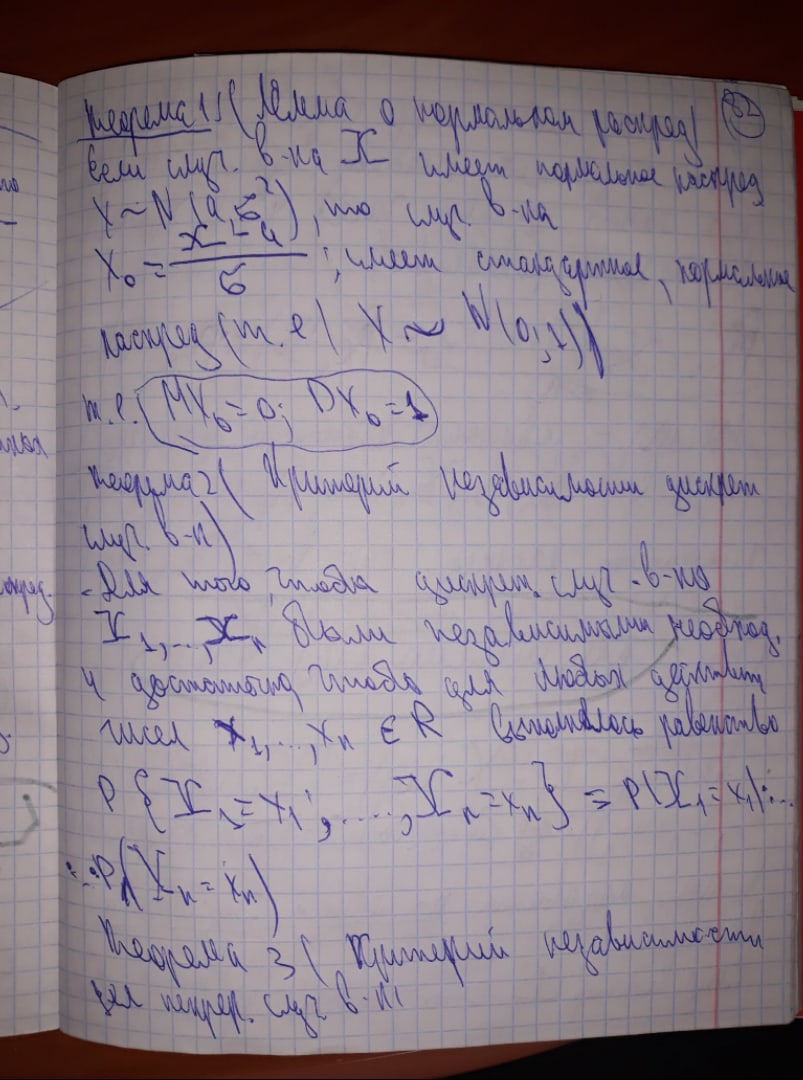 Теорема 1 (Лемма о нормальном распред) 32
Если случ. в-на X имеет нормальное распред
X ~ N (a, σ²), то случ. в-на
X₀ = (X - a) / σ ; имеет стандартное, нормальное
распред (т.е ( X ~ N(0;1))
т.е. ( MX₀ = 0; DX₀ = 1
Теорема 2 ( Критерий независимости дискрет
случ. в-н)
- Для того, чтобы дискрет. случ. в-на
X₁,...,Xₙ были независимыми необход.
и достаточно чтобы для любых действит
чисел x₁,...,xₙ ∈ R выполнялось равенство
P { X₁ = x₁; ....; Xₙ = xₙ } = P(X₁ = x₁)·...
·...·P(Xₙ = xₙ)
Теорема 3 ( Критерий независимости
для непрер. случ в-н